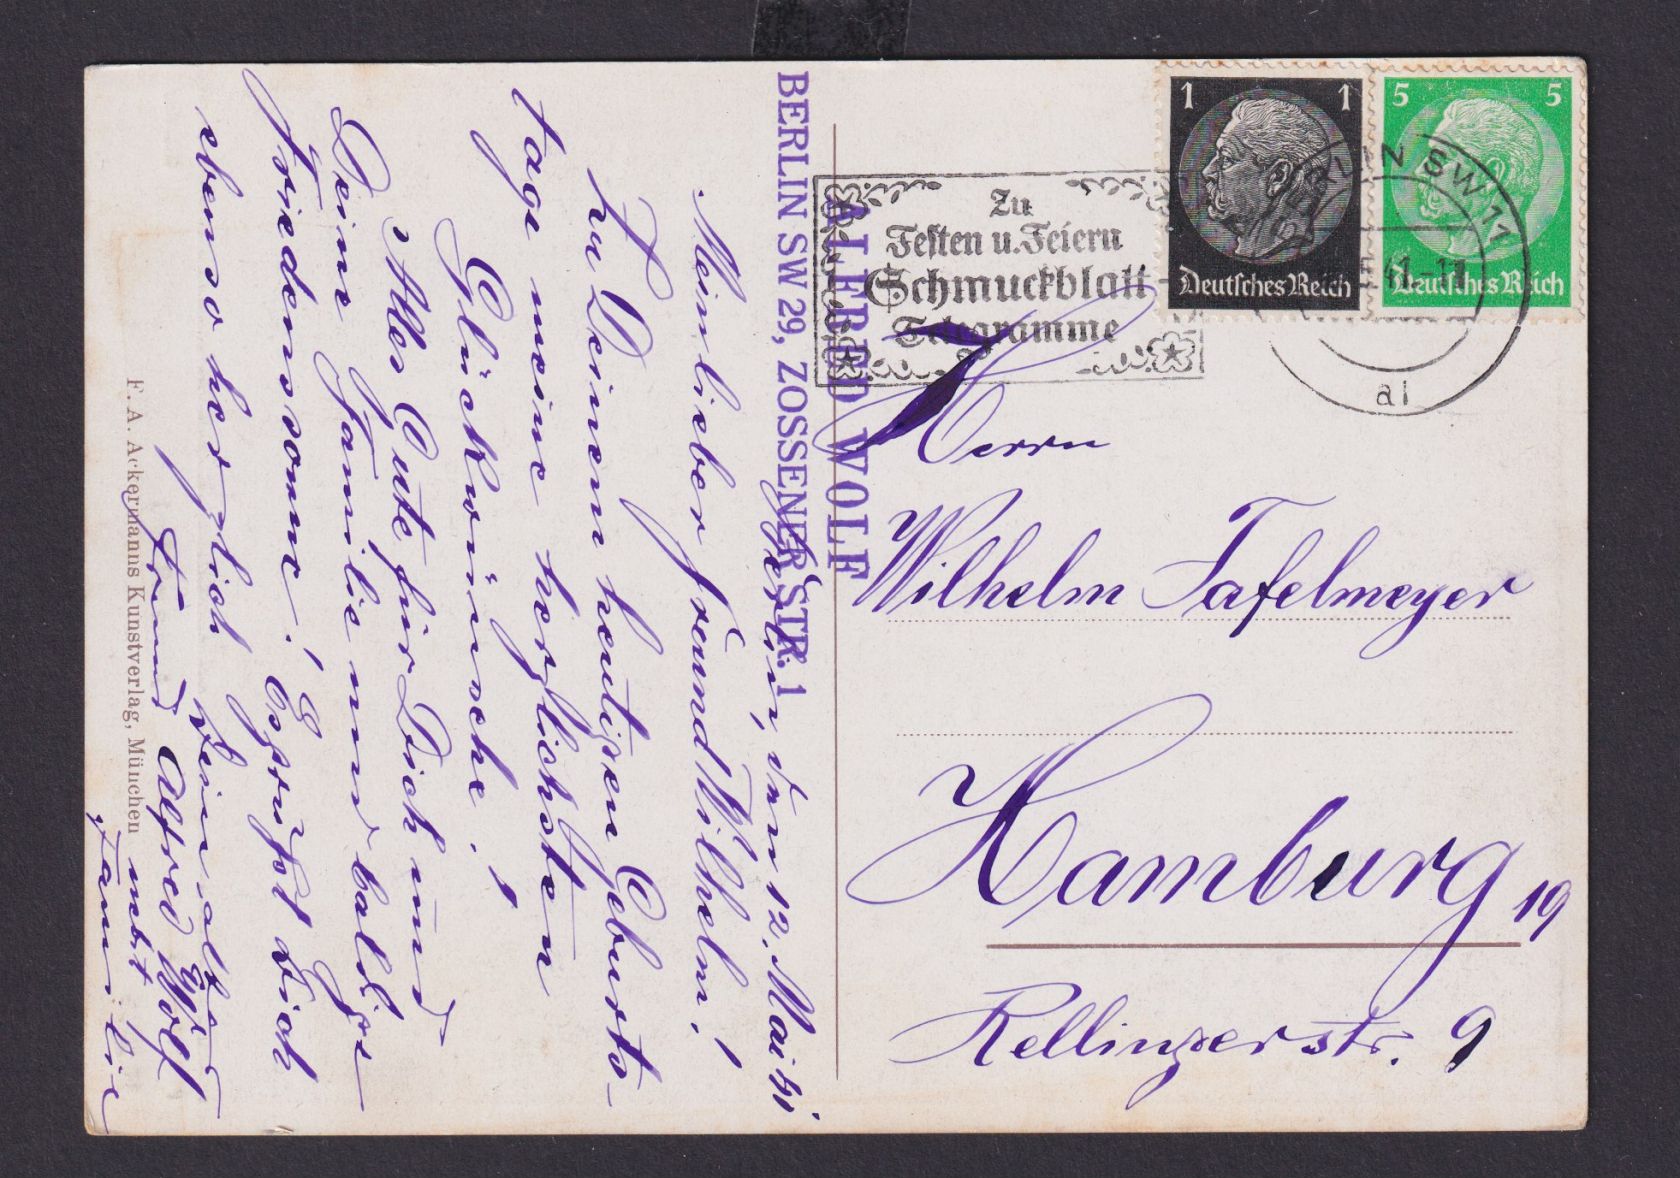 BERLIN SW 29, ZOSSENER STR. 1
ALFRED WOLF
Berlin, den 12. Mai 41
Mein lieber Freund Wilhelm!
Zu Deinem heutigen Geburts-
tage meine herzlichsten
Glückwünsche!
Alles Gute für Dich und
Deine Familie und baldige
Friedenssonne! Es grüßt Dich
ebenso herzlich Dein alter
Freund Alfred Wolf
nebst Familie
F. A. Ackermanns Kunstverlag, München
Zu
Festen u. Feiern
Schmuckblatt-
Telegramme
1 1
Deutsches Reich
5 5
Deutsches Reich
BERLIN SW 11
41.-17
al
Herrn
Wilhelm Tafelmeyer
Hamburg 19
Rellingerstr. 9